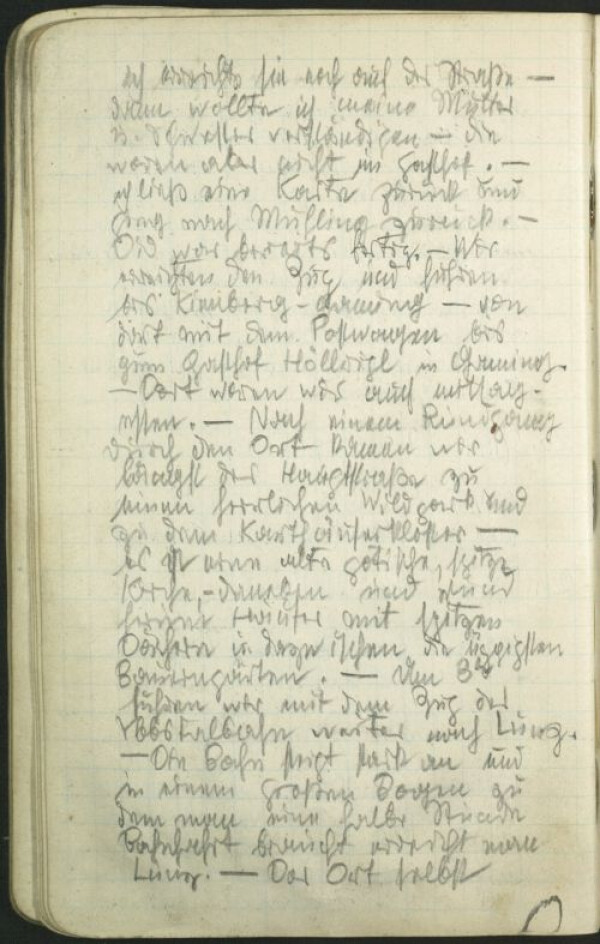 ich erreichte sie noch auf der Straße —
dann wollte ich meine Mutter
u. Schwester verständigen — die
waren aber nicht im Gasthof. —
ich ließ eine Karte zurück und
ging nach Mühling zurück. —
war bereits fertig. — Wir
erreichten den Zug und fuhren
bis Kienberg-Gaming — von
dort mit dem Postwagen bis
zum Gasthof Höllriegl in Gaming.
— Dort waren wir auch mittag-
essen. — Nach einem Rundgang
durch den Ort kamen wir
längst der Hauptstraße zu
einem herrlichen Wildpark und
zu dem Karthäuserkloster —
es ist eine alte gotische, spitze
Kirche, – daneben und rund
herum Häuser mit spitzen
Dächern u dazwischen die üppigsten
Bauerngärten. — Um 3
fuhren wir mit dem Zug der
Ybbstalbahn weiter nach Lunz.
— Die Bahn steigt stark an und
in einem großen Bogen zu
dem man eine halbe Stunde
Bahnfahrt braucht erreicht man
Lunz. — Der Ort selbst